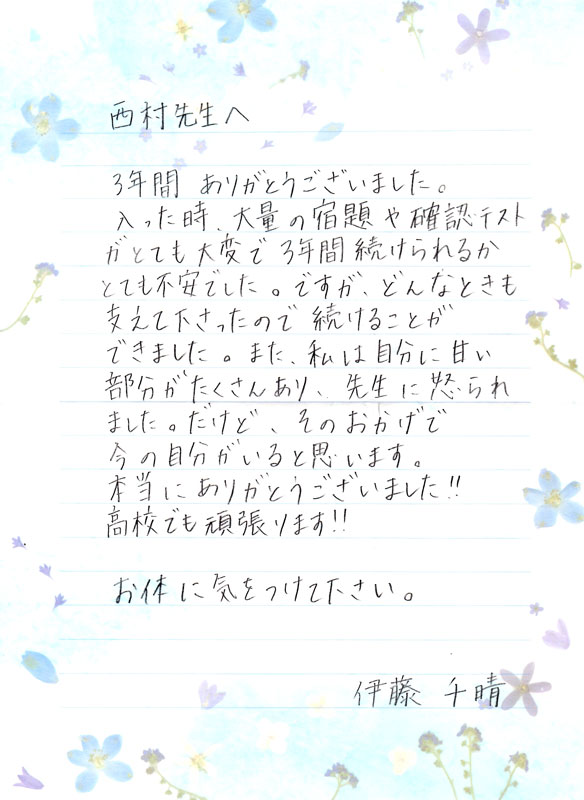 西村先生へ
3年間 ありがとうございました。
入った時、大量の宿題や確認テスト
がとても大変で 3年間続けられるか
とても不安でした。ですが、どんなときも
支えて下さったので 続けることが
できました。また、私は自分に甘い
部分がたくさんあり、先生に怒られ
ました。だけど、そのおかげで
今の自分がいると思います。
本当にありがとうございました!!
高校でも頑張ります!!
お体に気をつけて下さい。
伊藤 千晴